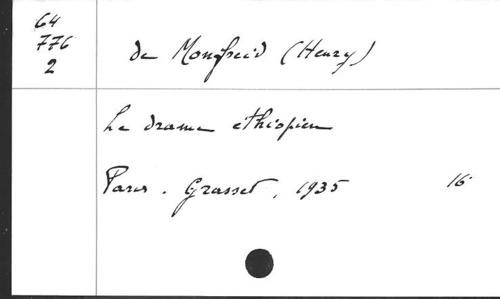 64
776
2
de Monfreid (Henry)
Le drame ethiopien
Paris. Grasset, 1935 16°